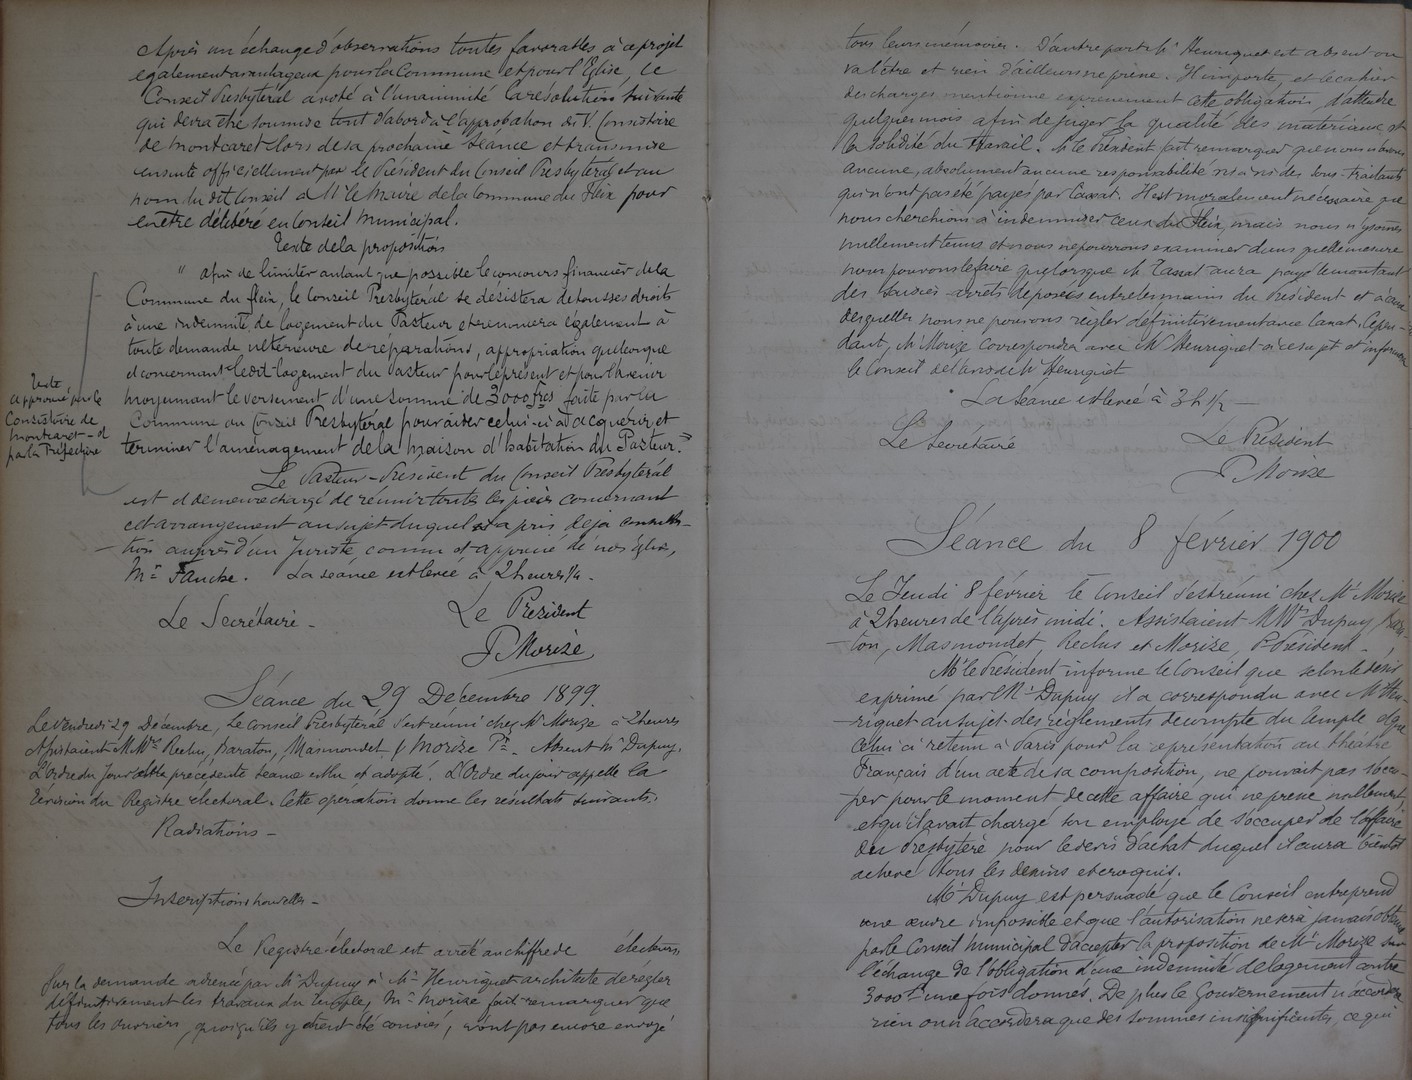 Après un échange d'observations toutes favorables à ce projet
également avantageux pour la Commune et pour l'Eglise, le
Conseil Presbytéral a voté à l'unanimité la résolution suivante
qui devra être soumise tout d'abord à l'approbation du V. Consistoire
de Montcaret lors de sa prochaine séance et transmise
ensuite officiellement par le Président du Conseil Presbytéral et au
nom du dit Conseil à Mr le Maire de la Commune du Fleix pour
en être délibéré en Conseil Municipal.
Texte de la proposition
" Afin de limiter autant que possible le concours financier de la
Commune du Fleix, le Conseil Presbytéral se désistera de tous ses droits
à une indemnité de logement du Pasteur et renoncera également à
toute demande ultérieure de réparations, appropriation quelconque
et concernant le dit logement du Pasteur pour le présent et pour l'avenir
moyennant le versement d'une somme de 3000 frcs faite par la
Commune au Conseil Presbytéral pour aider celui-ci à acquérir et
terminer l'aménagement de la maison d'habitation du Pasteur."
Texte
approuvé par le
Consistoire de
Montcaret - et
par la Préfecture
Le Pasteur-Président du Conseil Presbytéral
est et demeure chargé de réunir toutes les pièces concernant
cet arrangement au sujet duquel il a pris déjà consulta-
tion auprès d'un juriste, connu et apprécié de nos églises,
Mr Fauche. La séance est levée à 2 heures 1/4.
Le Secrétaire. Le Président
P Morize
Séance du 29 Décembre 1899.
Le Vendredi 29 Décembre, le Conseil Presbytéral s'est réuni chez Mr Morize à 2 heures
Assistaient MMrs Reclus, Baraton, Masmondet & Morize Pt. Absent Mr Dupuy.
L'Ordre du Jour de la précédente séance est lu et adopté. L'Ordre du jour appelle la
révision du Registre électoral. Cette opération donne les résultats suivants.
Radiations -
Inscriptions nouvelles -
Le Registre électoral est arrêté au chiffre de électeurs
Sur la demande adressée par Mr Dupuy à Mr Henriquet architecte de régler
définitivement les travaux du temple, Mr Morize fait remarquer que
tous les ouvriers, quoiqu'ils y aient été conviés, n'ont pas encore envoyé
tous leurs mémoires. D'autre part Mr Henriquet est absent ou
va l'être et rien d'ailleurs ne presse. Il importe, et le cahier
des charges mentionne expressément cette obligation, d'attendre
quelques mois afin de juger la qualité des matériaux et
la solidité du travail. M le Président fait remarquer que nous n'avons
aucune, absolument aucune responsabilité vis à vis des sous-traitants
qui n'ont pas été payés par Cassat. Il est moralement nécessaire que
nous cherchions à indemniser ceux du Fleix, mais nous n'y sommes
nullement tenus et nous ne pourrons examiner dans quelle mesure
nous pouvons le faire que lorsque M Cassat aura payé le montant
des saisies arrêts déposées entre les mains du Président et à cause
desquelles nous ne pouvons régler définitivement avec Cassat. Cepen-
dant, Mr Morize correspondra avec Mr Henriquet à ce sujet et informera
le Conseil de l'avis de Mr Henriquet
La Séance est levée à 3h 1/2 -
Le Secrétaire Le Président
P Morize
Séance du 8 février 1900
Le Jeudi 8 février le Conseil s'est réuni chez Mr Morize
à 2 heures de l'après midi. Assistaient MMrs Dupuy, Bara-
ton, Masmondet, Reclus et Morize, P-Président.
Mr le Président informe le Conseil que selon le désir
exprimé par Mr Dupuy il a correspondu avec Mr Hen-
riquet au sujet des règlements de compte du temple et que
celui ci retenu à Paris pour la représentation au théâtre
Français d'un acte de sa composition, ne pouvait pas s'occu-
per pour le moment de cette affaire qui ne presse nullement,
et qu'il avait chargé son employé de s'occuper de l'affaire
du Presbytère pour le devis d'achat duquel il aura bientôt
achevé tous les dessins et croquis.
Mr Dupuy est persuadé que le Conseil entreprend
une œuvre impossible et que l'autorisation ne sera jamais obtenue
par le Conseil Municipal d'accepter la proposition de Mr Morize sur
l'échange de l'obligation d'une indemnité de logement contre
3000 f une fois donnés. De plus le Gouvernement n'accorde
rien ou n'accordera que des sommes insignifiantes, ce qui